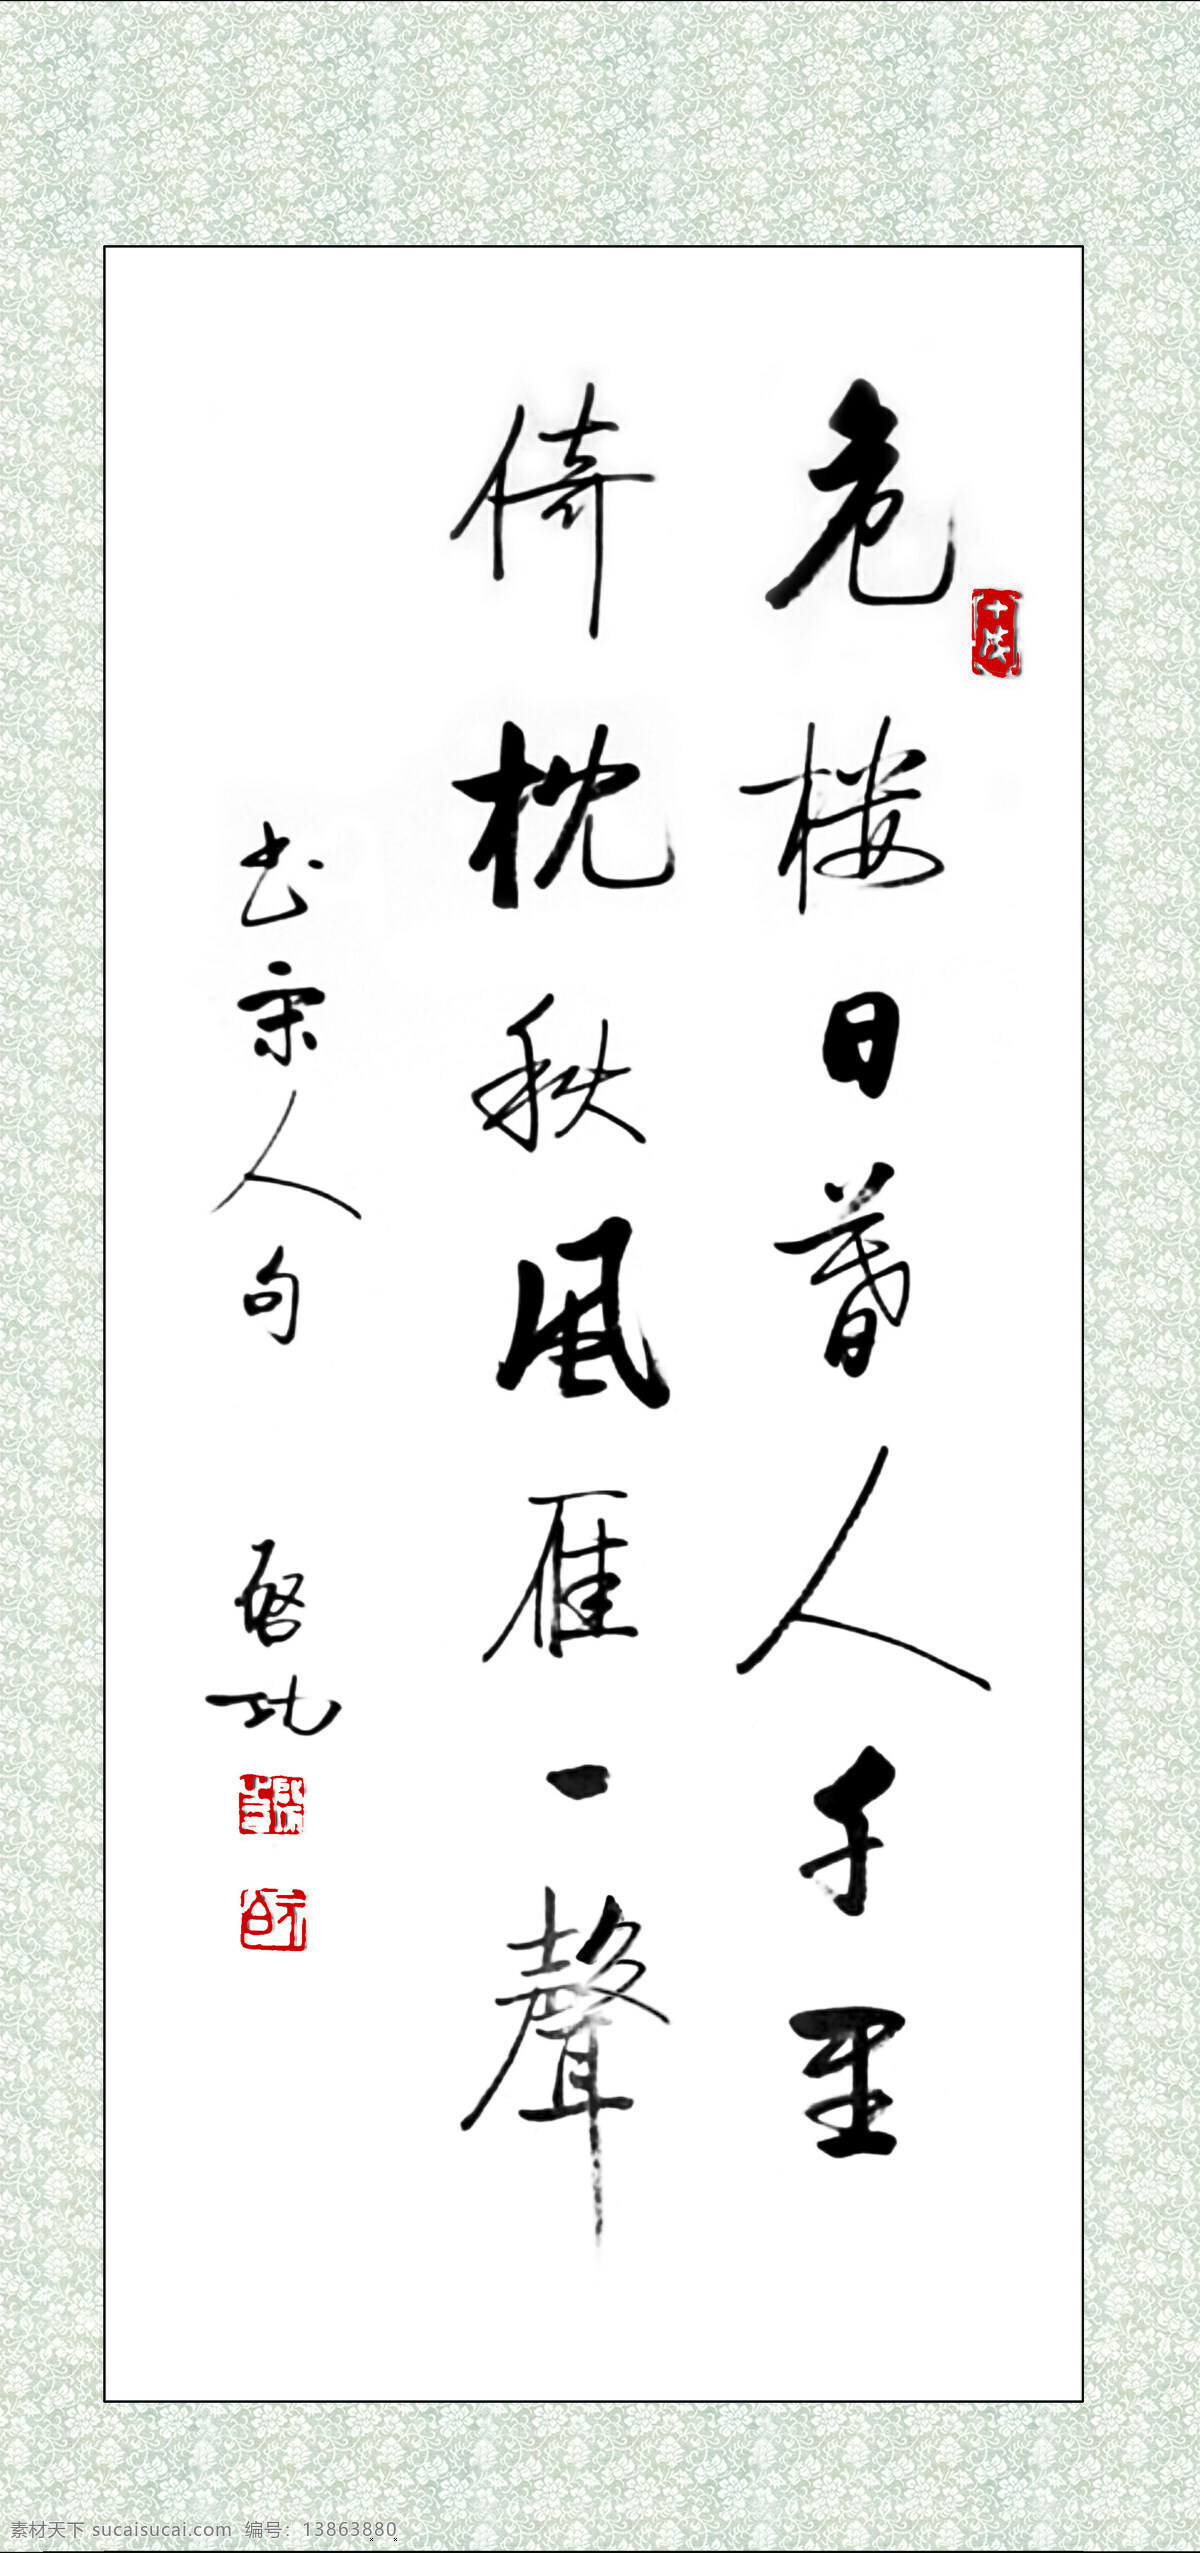 危楼日暮人千里
倚枕秋風雁一聲
书宋人句 启功
素材天下 sucaisucai.com 编号：13863880